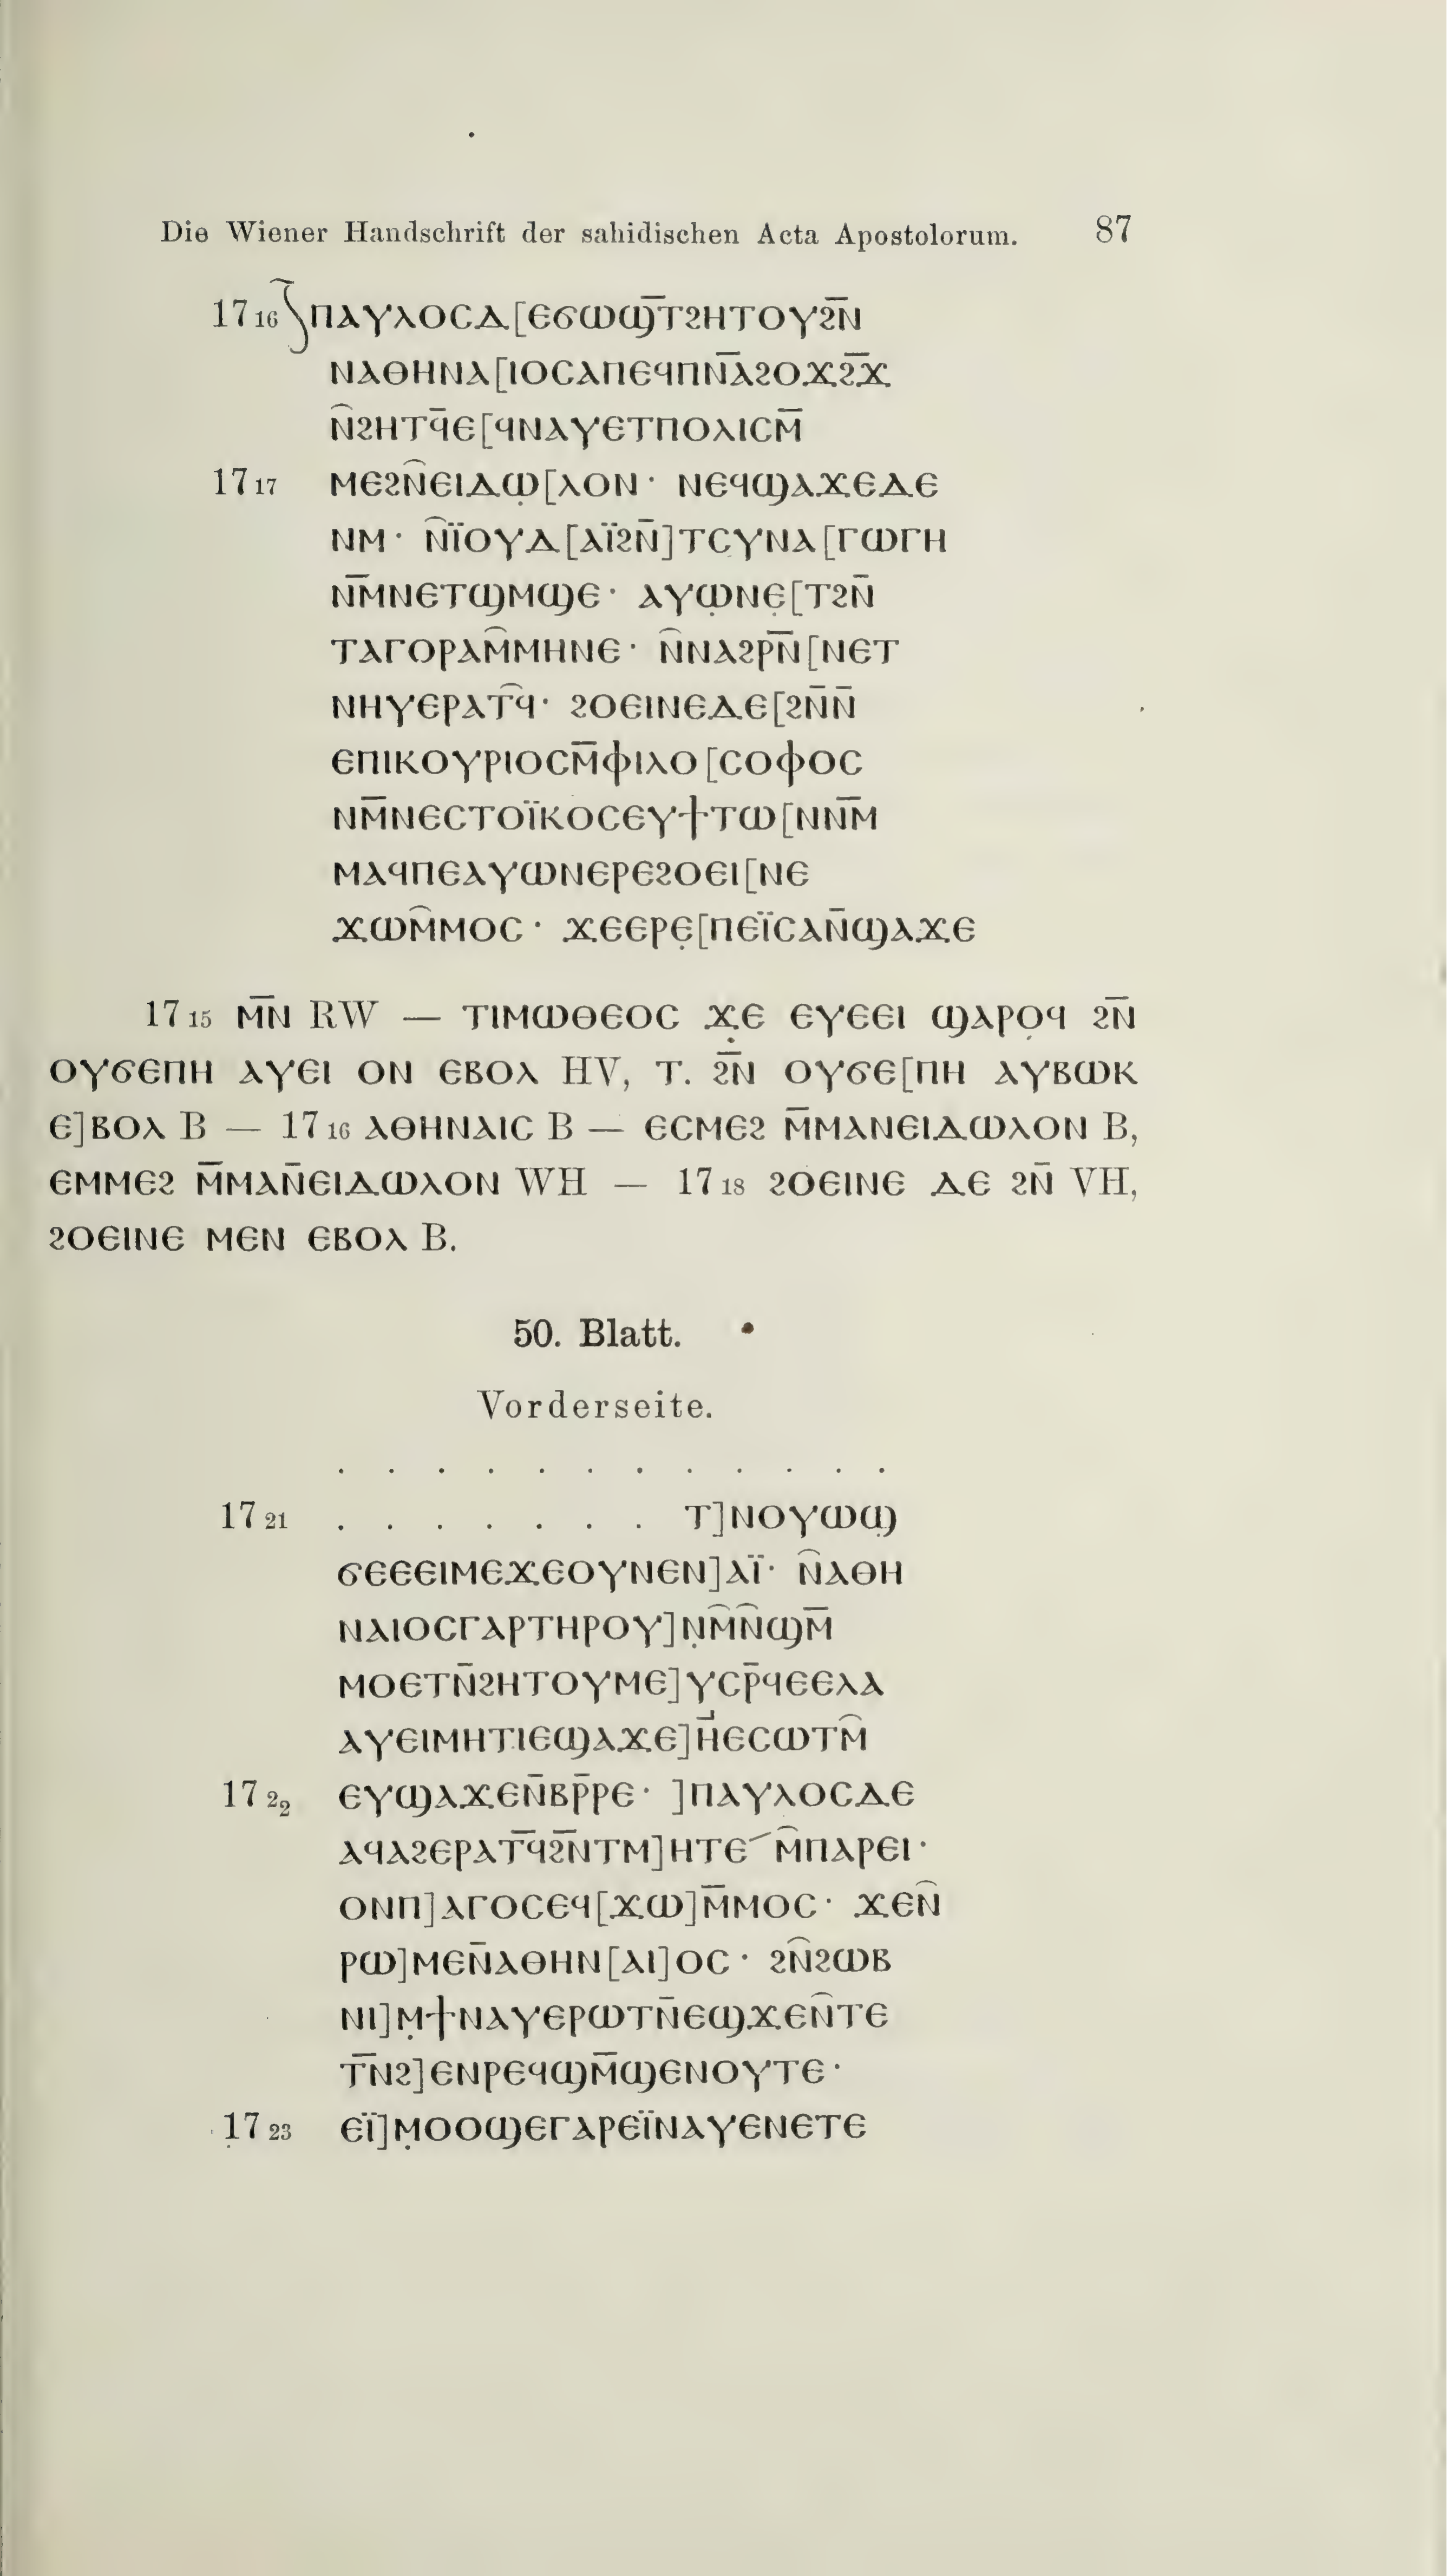 Die Wiener Handschrift der sahidischen Acta Apostolorum. 87
17 16 ⲡⲁⲩⲗⲟⲥⲇ[ⲉϭⲱϣ̅ⲧϩⲏⲧⲟⲩϩ̅ⲛ
ⲛⲁⲑⲏⲛⲁ[ⲓⲟⲥⲁⲡⲉϥⲡⲛ̅ⲁϩⲟϫϩ̅ϫ
ⲛ̑ϩⲏⲧϥ̅ⲉ[ϥⲛⲁⲩⲉⲧⲡⲟⲗⲓⲥⲙ̅
17 17 ⲙⲉϩⲛ̑ⲉⲓⲇⲱ̣[ⲗⲟⲛ· ⲛⲉϥϣⲁϫⲉⲇⲉ
ⲛⲙ· ⲛ̑ⲓ̈ⲟⲩⲇ[ⲁⲓ̈ϩⲛ̅]ⲧⲥⲩⲛⲁ[ⲅⲱⲅⲏ
ⲛ̅ⲙⲛⲉⲧϣⲙϣⲉ· ⲁⲩⲱ̣ⲛⲉ̣[ⲧϩⲛ̅
ⲧⲁⲅⲟⲣⲁⲙ̑ⲙⲏⲛⲉ· ⲛ̑ⲛⲁϩⲣ̅ⲛ[ⲛⲉⲧ
ⲛⲏⲩⲉⲣⲁⲧ̑ϥ· ϩⲟⲉⲓⲛⲉⲇⲉ[ϩⲛ̅ⲛ̅
ⲉⲡⲓⲕⲟⲩⲣⲓⲟⲥⲙ̅ⲫⲓⲗⲟ[ⲥⲟⲫⲟⲥ
ⲛⲙ̅ⲛⲉⲥⲧⲟⲓ̈ⲕⲟⲥⲉⲩϯⲧⲱ[ⲛⲛ̅ⲙ
ⲙⲁϥⲡⲉⲁⲩⲱⲛⲉⲣⲉϩⲟⲉⲓ[ⲛⲉ
ϫⲱⲙ̑ⲙⲟⲥ· ϫⲉⲉⲣⲉ̣[ⲡⲉⲓ̈ⲥⲁⲛ̅ϣⲁϫⲉ
17 15 ⲙ̅ⲛ RW — ⲧⲓⲙⲱⲑⲉⲟⲥ ϫⲉ ⲉⲩⲉⲉⲓ ϣⲁⲣⲟϥ ϩ̅ⲛ
ⲟⲩϭⲉⲡⲏ ⲁⲩⲉⲓ ⲟⲛ ⲉⲃⲟⲗ HV, ⲧ. ϩ̅ⲛ ⲟⲩϭⲉ[ⲡⲏ ⲁⲩⲃⲱⲕ
ⲉ]ⲃⲟⲗ B — 17 16 ⲁⲑⲏⲛⲁⲓⲥ B — ⲉⲥⲙⲉϩ ⲙ̅ⲙⲁⲛⲉⲓⲇⲱⲗⲟⲛ B,
ⲉⲙⲙⲉϩ ⲙ̅ⲙⲁⲛ̅ⲉⲓⲇⲱⲗⲟⲛ WH — 17 18 ϩⲟⲉⲓⲛⲉ ⲇⲉ ϩⲛ̅ VH,
ϩⲟⲉⲓⲛⲉ ⲙⲉⲛ ⲉⲃⲟⲗ B.
50. Blatt.
Vorderseite.
. . . . . . . . . . . .
17 21 . . . . . . . ⲧ]ⲛⲟⲩⲱϣ
ϭⲉⲉⲉⲓⲙⲉϫⲉⲟⲩⲛⲉⲛ]ⲁⲓ̈· ⲛ̑ⲁⲑⲏ
ⲛⲁⲓⲟⲥⲅⲁⲣⲧⲏⲣⲟⲩ]ⲛ̣ⲙ̑ⲛ̑ϣⲙ̅
ⲙⲟⲉⲧⲛ̅ϩⲏⲧⲟⲩⲙⲉ]ⲩⲥⲣ̅ϥⲉⲉⲗⲁ
ⲁⲩⲉⲓⲙⲏⲧⲓⲉϣⲁϫⲉ]ⲏ̓ⲉⲥⲱⲧⲙ̑
17 22 ⲉⲩϣⲁϫⲉⲛ̅ⲃⲣ̅ⲣⲉ· ]ⲡⲁⲩⲗⲟⲥⲇⲉ
ⲁϥⲁϩⲉⲣⲁⲧ̅ϥϩ̅ⲛⲧⲙ]ⲏⲧⲉ´ⲙ̑ⲡⲁⲣⲉⲓ·
ⲟⲛⲡ]ⲁⲅⲟⲥⲉϥ[ϫⲱ]ⲙ̅ⲙⲟⲥ· ϫⲉⲛ̑
ⲣⲱ]ⲙⲉⲛ̅ⲁⲑⲏⲛ[ⲁⲓ]ⲟⲥ· ϩⲛ̑ϩⲱⲃ
ⲛⲓ]ⲙ̣ϯⲛⲁⲩⲉⲣⲱⲧⲛ̅ⲉϣϫⲉⲛ̑ⲧⲉ
ⲧ̅ⲛϩ]ⲉⲛⲣⲉϥϣⲙ̅ϣⲉⲛⲟⲩⲧⲉ·
17 23 ⲉⲓ̈]ⲙ̣ⲟⲟϣⲉⲅⲁⲣⲉⲓ̈ⲛⲁⲩⲉⲛⲉⲧⲉ